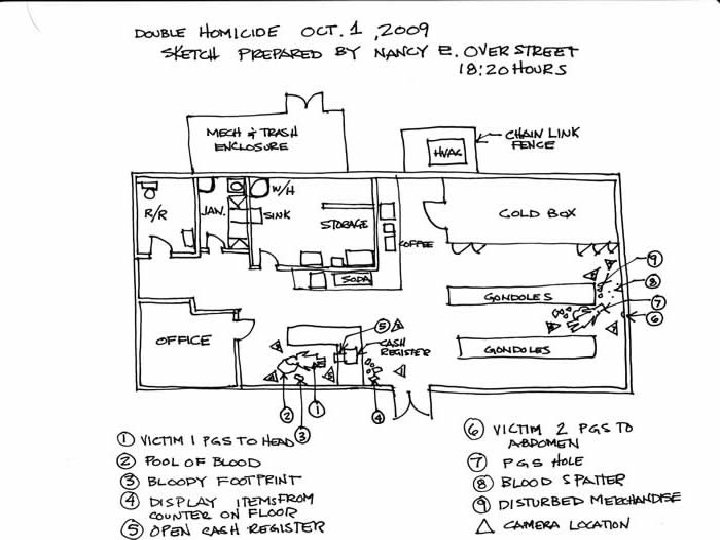 DOUBLE HOMICIDE OCT. 1, 2009
SKETCH PREPARED BY NANCY E. OVERSTREET
18:20 HOURS
MECH & TRASH
ENCLOSURE
CHAIN LINK
FENCE
HVAC
R/R
JAN.
W/H
SINK
STORAGE
COFFEE
COLD BOX
SODA
GONDOLES
GONDOLES
OFFICE
CASH
REGISTER
5
9
8
7
6
2
3
1
4
1 VICTIM 1 PGS TO HEAD
2 POOL OF BLOOD
3 BLOODY FOOTPRINT
4 DISPLAY ITEMS FROM
COUNTER ON FLOOR
5 OPEN CASH REGISTER
6 VICTIM 2 PGS TO
ABDOMEN
7 PGS HOLE
8 BLOOD SPATTER
9 DISTURBED MERCHANDISE
CAMERA LOCATION